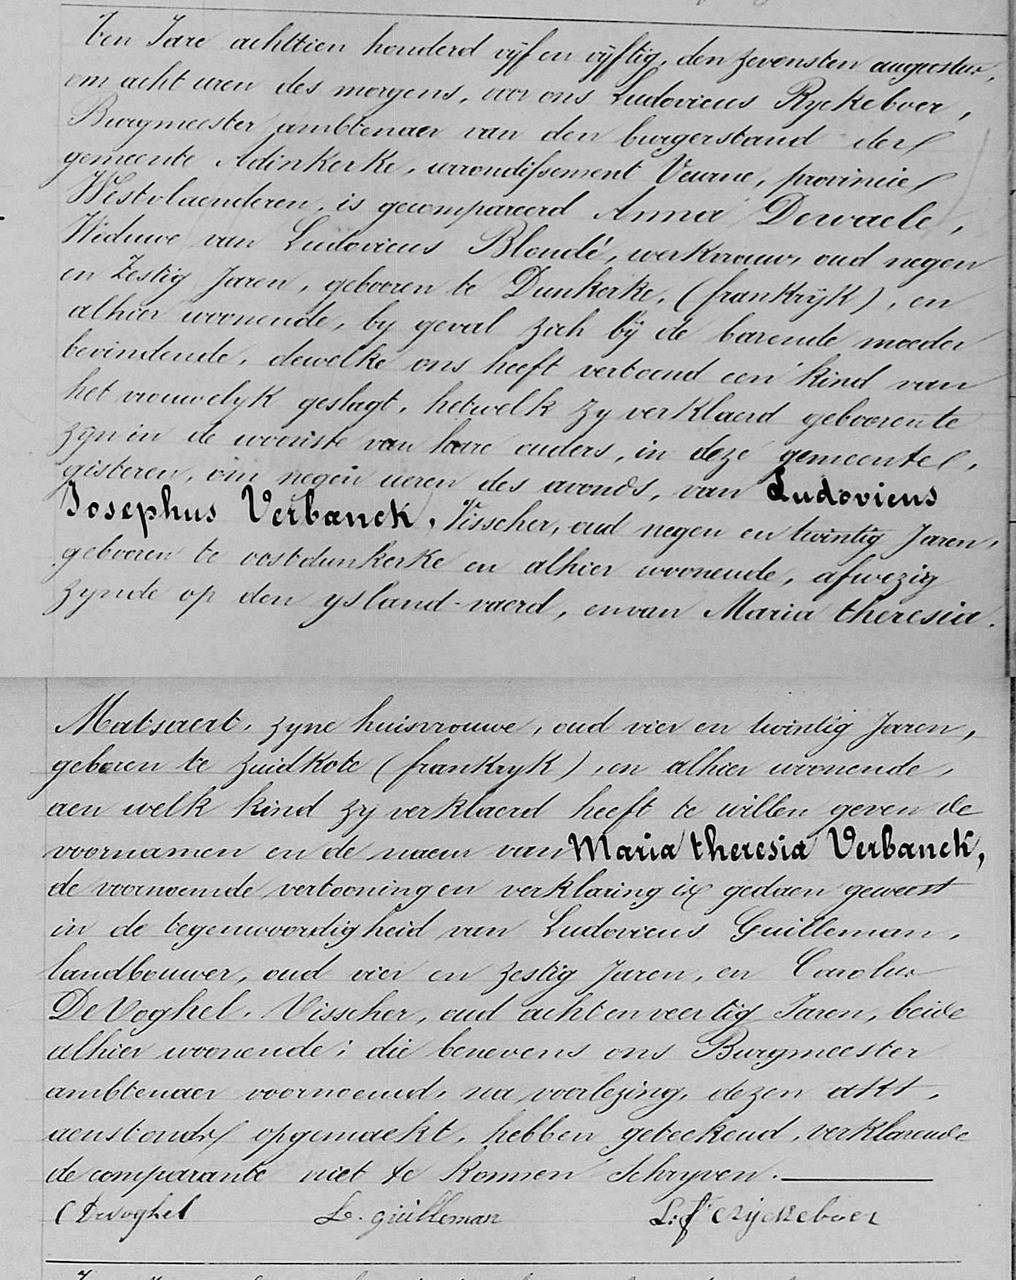 Ten Jare achttien honderd vijf en vijftig, den zevensten augustus,
om acht uren des morgens, voor ons Ludovicus Ryckeboer,
Burgmeester ambtenaer van den burgerstand der
gemeente Adinkerke, arrondissement Veurne, provincie
Westvlaenderen, is gecompareerd Anna Dewaele,
Weduwe van Ludovicus Blondé, werkvrouw, oud negen
en Zestig Jaren, gebooren te Dunkerke, (frankrijk), en
alhier woonende, by geval zich bij de barende moeder
bevindende, dewelke ons heeft vertoond een kind van
het vrouwelyk geslagt, hetwelk zy verklaerd gebooren te
zyn in de wooniste van hare ouders, in deze gemeente,
gisteren, om negen uren des avonds, van Ludovicus
Josephus Verbanck, Visscher, oud negen en twintig Jaren,
gebooren te oostdunkerke en alhier woonende, afwezig
zynde op den ysland-vaerd, en van Maria theresia
Matsaert, zyne huisvrouwe, oud vier en twintig Jaren,
geboren te zuidkote (frankryk), en alhier woonende,
aen welk kind zy verklaerd heeft te willen geven de
voornamen en de naem van Maria theresia Verbanck,
de voornoemde vertooning en verklaring is gedaen geweest
in de tegenwoordigheid van Ludovicus Guilleman,
landbouwer, oud vier en zestig Jaren, en Carolus
De Voghel, Visscher, oud acht en veertig Jaren, beide
alhier woonende; die benevens ons Burgmeester
ambtenaer voornoemd, na voorlezing, dezen akt,
aenstonds opgemaekt, hebben geteekend, verklarende
de comparante niet te konnen schryven.
C Devoghel L. guilleman L. f Ryckeboer